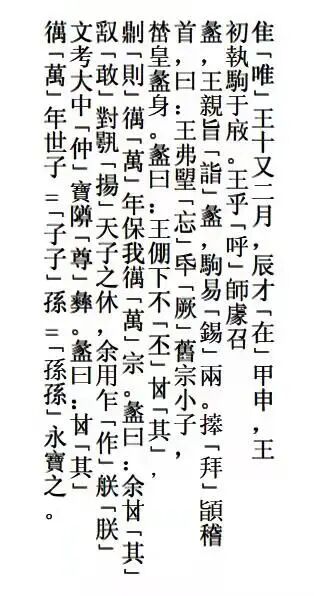 隹「唯」王十又二月，辰才「在」甲申，王
初執駒于㡴。王乎「呼」師豦召
盠，王親旨「詣」盠，駒易「錫」兩。𢱭「拜」𩒨稽
首，曰：王弗朢「忘」氒「厥」舊宗小子，
皇盠身。盠曰：王倗下不「丕」𠀠「其」，
𠟭「則」邁「萬」年保我邁「萬」宗。盠曰：余𠀠「其」
㪉「敢」對「揚」天子之休，余用乍「作」「朕」
文考大中「仲」寶「尊」彝。盠曰：𠀠「其」
邁「萬」年世子＝「子子」孫＝「孫孫」永寶之。